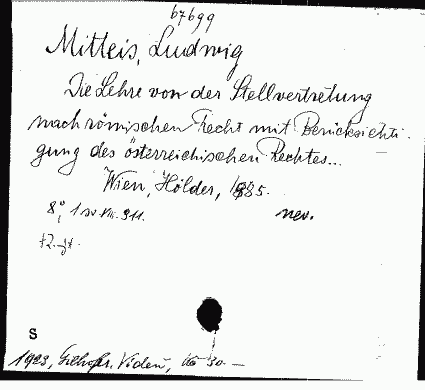 67699
Mitteis, Ludwig
Die Lehre von der Stellvertretung
nach römischen Recht mit Berücksichti-
gung des österreichischen Rechtes...
Wien, Hölder, 1885.
8°, 1 sv VIII. 311. nev.
S
1923, Gilhofer. Videň, 30.—